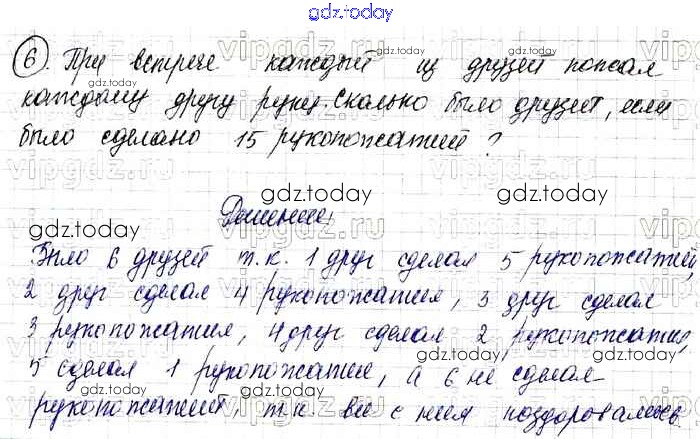 gdz.today
6. При встрече каждый из друзей пожал
каждому другу руку. Сколько было друзей, если
было сделано 15 рукопожатий?
gdz.today
gdz.today
gdz.today
Решение
Было 6 друзей т.к. 1 друг сделал 5 рукопожатий,
2 друг сделал 4 рукопожатия, 3 друг сделал
3 рукопожатия, 4 друг сделал 2 рукопожатия,
gdz.today
gdz.today
5 сделал 1 рукопожатие, а 6 не сделал
рукопожатий, т.к. все с ним поздоровались.
gdz.today
gdz.today
vipgdz.ru